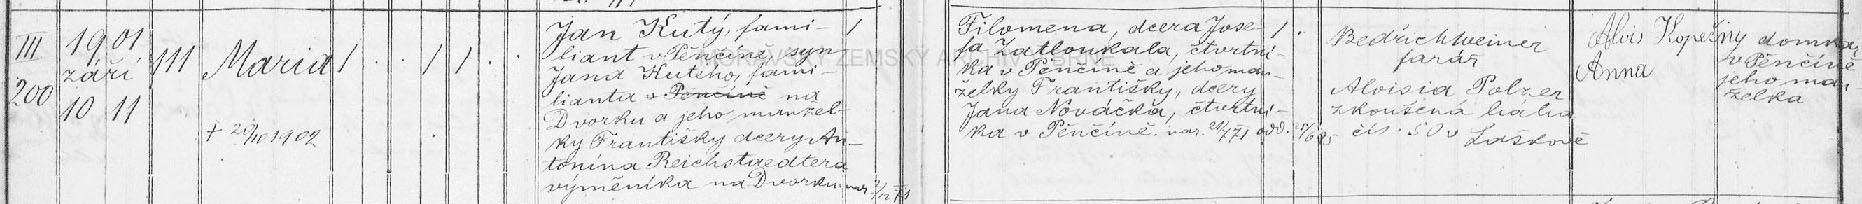 III 200
1901
září
10 11
111
Maria
+ 1902
Jan Kutý, fami-
liant v Pěnčíně, syn
Jana Kutého, fami-
lianta v Pěnčíně na
Dvorku a jeho manžel-
ky Františky dcery An-
tonína Reichstaedtera
výměníka na Dvorku nar.
Filomena, dcera Jose-
fa Zatloukala, čtvrtní-
ka v Pěnčíně a jeho man-
želky Františky, dcery
Jana Nováčka, čtvrtní-
ka v Pěnčíně. nar. odd.
Bedřich Weiner
farář
Aloisia Polzer
zkoušená bába
čís. 50 v
Laškově
Alois Kopečný domkař
v Pěnčíně
Anna jeho man-
želka
MORAVSKÝ ZEMSKÝ ARCHIV V BRNĚ